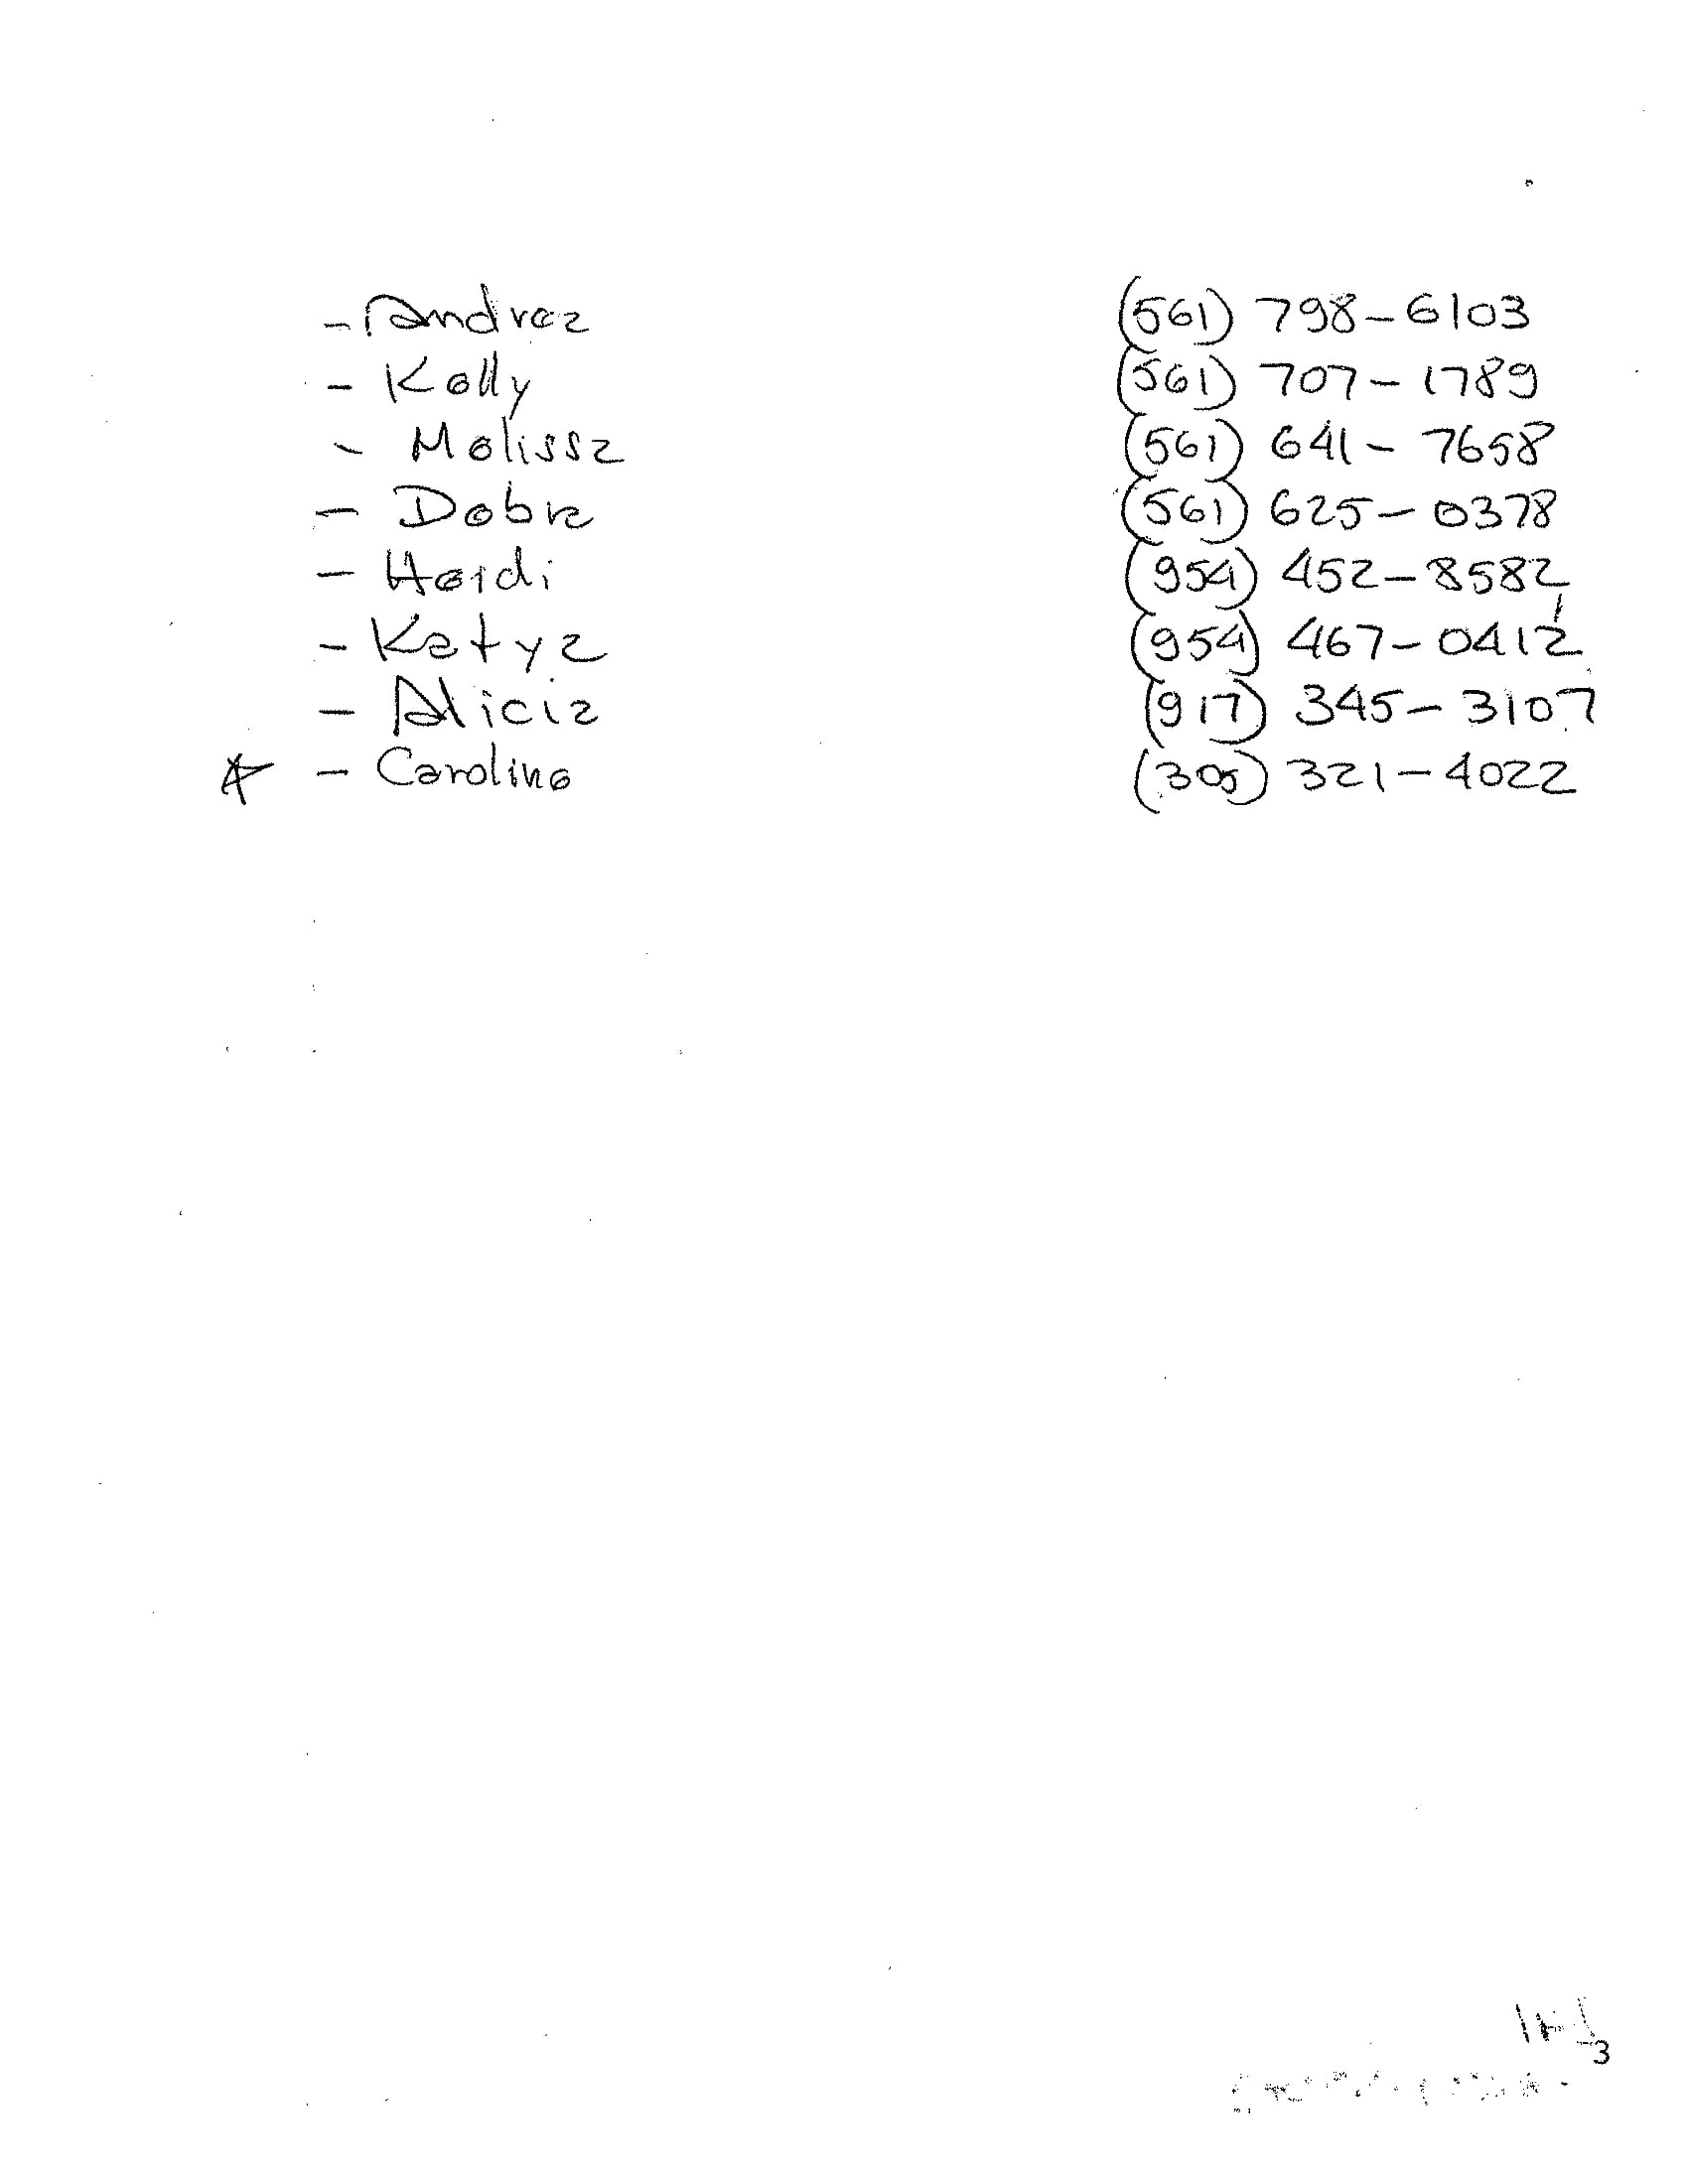 - Andrea (561) 798-6103
- Kelly (561) 707-1789
- Melissa (561) 641-7658
- Debra (561) 625-0378
- Heidi (954) 452-8582
- Katya (954) 467-0412
- Alicia (917) 345-3107
☆ - Caroline (305) 321-4022
3